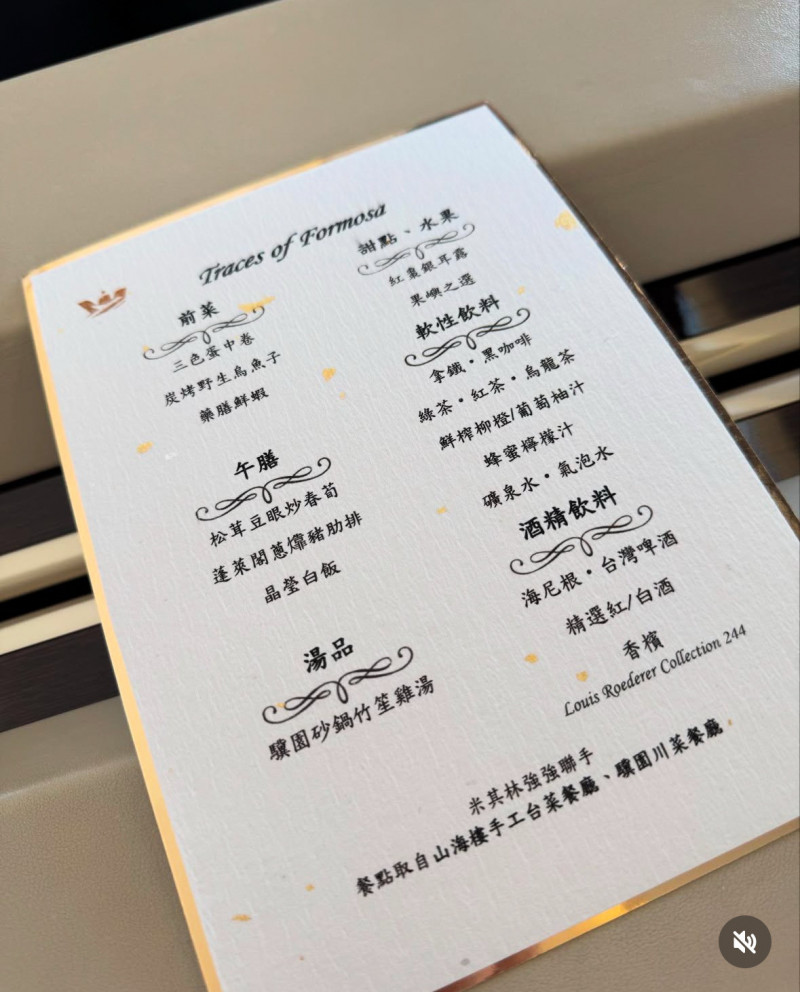 Traces of Formosa
前菜
三色蛋中卷
炭烤野生烏魚子
藥膳鮮蝦
午膳
松茸豆眼炒春筍
蓬萊閣蔥㸆豬肋排
晶瑩白飯
湯品
驥園砂鍋竹笙雞湯
甜點、水果
紅棗銀耳露
果嶼之選
軟性飲料
拿鐵•黑咖啡
綠茶•紅茶•烏龍茶
鮮榨柳橙/葡萄柚汁
蜂蜜檸檬汁
礦泉水•氣泡水
酒精飲料
海尼根•台灣啤酒
精選紅/白酒
香檳
Louis Roederer Collection 244
米其林強強聯手
餐點取自山海樓手工台菜餐廳、驥園川菜餐廳